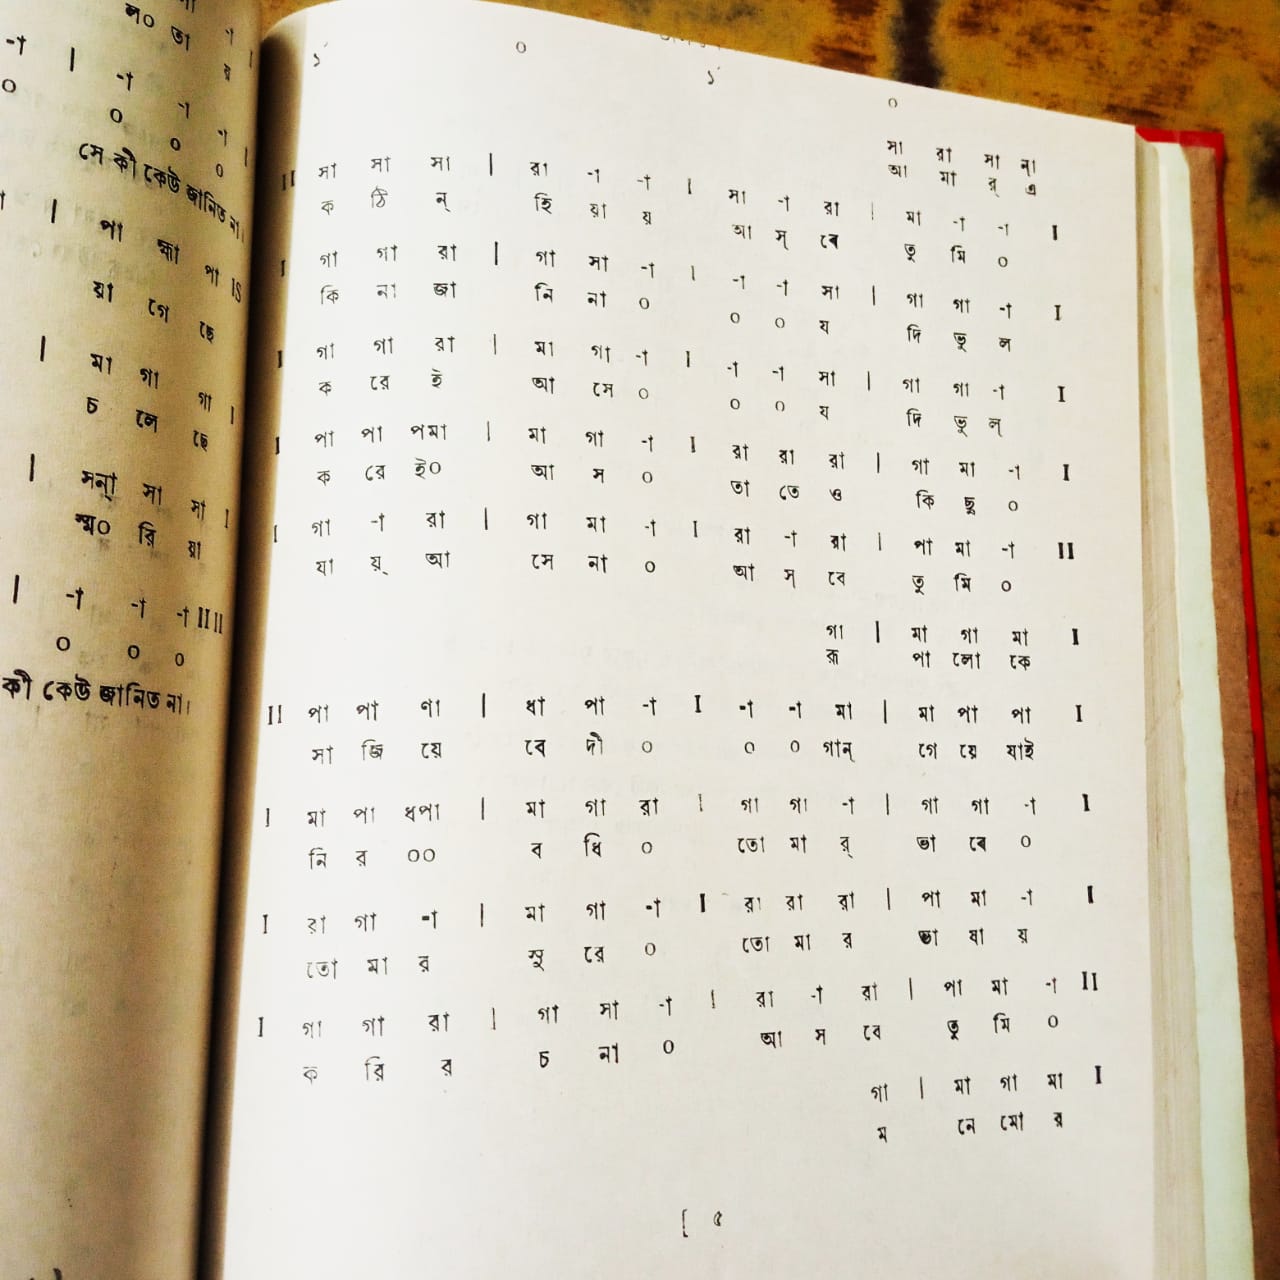 ল০ তা য়
-া | -া -া -া |
০ ০ ০ ০
সে কী কেউ জানিত না।
| পা হ্মা পা IS
য়া গে ছে
| মা গা গা |
চ লে ছে
| সন্‌া সা সা I
স্ম০ রি য়া
| -া -া -া II II
০ ০ ০
কী কেউ জানিত না।
১´ ০ ১´ ০
সা রা সা না
আ মা র্ এ
II সা সা সা | রা -া -া I সা -া রা | মা -া -া I
ক ঠি ন্ হি য়া য় আ স্ বে তু মি ০
I গা গা রা | গা সা -া I -া -া সা | গা গা -া I
কি না জা নি না ০ ০ ০ য দি ভু ল
I গা গা রা | মা গা -া I -া -া সা | গা গা -া I
ক রে ই আ সে ০ ০ ০ য দি ভু ল্
I পা পা পমা | মা গা -া I রা রা রা | গা মা -া I
ক রে ই০ আ স ০ তা তে ও কি ছু ০
I গা -া রা | গা মা -া I রা -া রা | পা মা -া II
যা য়্ আ সে না ০ আ স্ বে তু মি ০
গা | মা গা মা I
রূ পা লো কে
II পা পা ণা | ধা পা -া I -া -া মা | মা পা পা I
সা জি য়ে বে দী ০ ০ ০ গান্ গে য়ে যাই
I মা পা ধপা | মা গা রা I গা গা -া | গা গা -া I
নি র ০০ ব ধি ০ তো মা র্ ভা বে ০
I রা গা -া | মা গা -া I রা রা রা | পা মা -া I
তো মা র সু রে ০ তো মা র ভা ষা য়
I গা গা রা | গা সা -া I রা -া রা | পা মা -া II
ক রি র চ না ০ আ স বে তু মি ০
গা | মা গা মা I
ম নে মো র
[ ৫